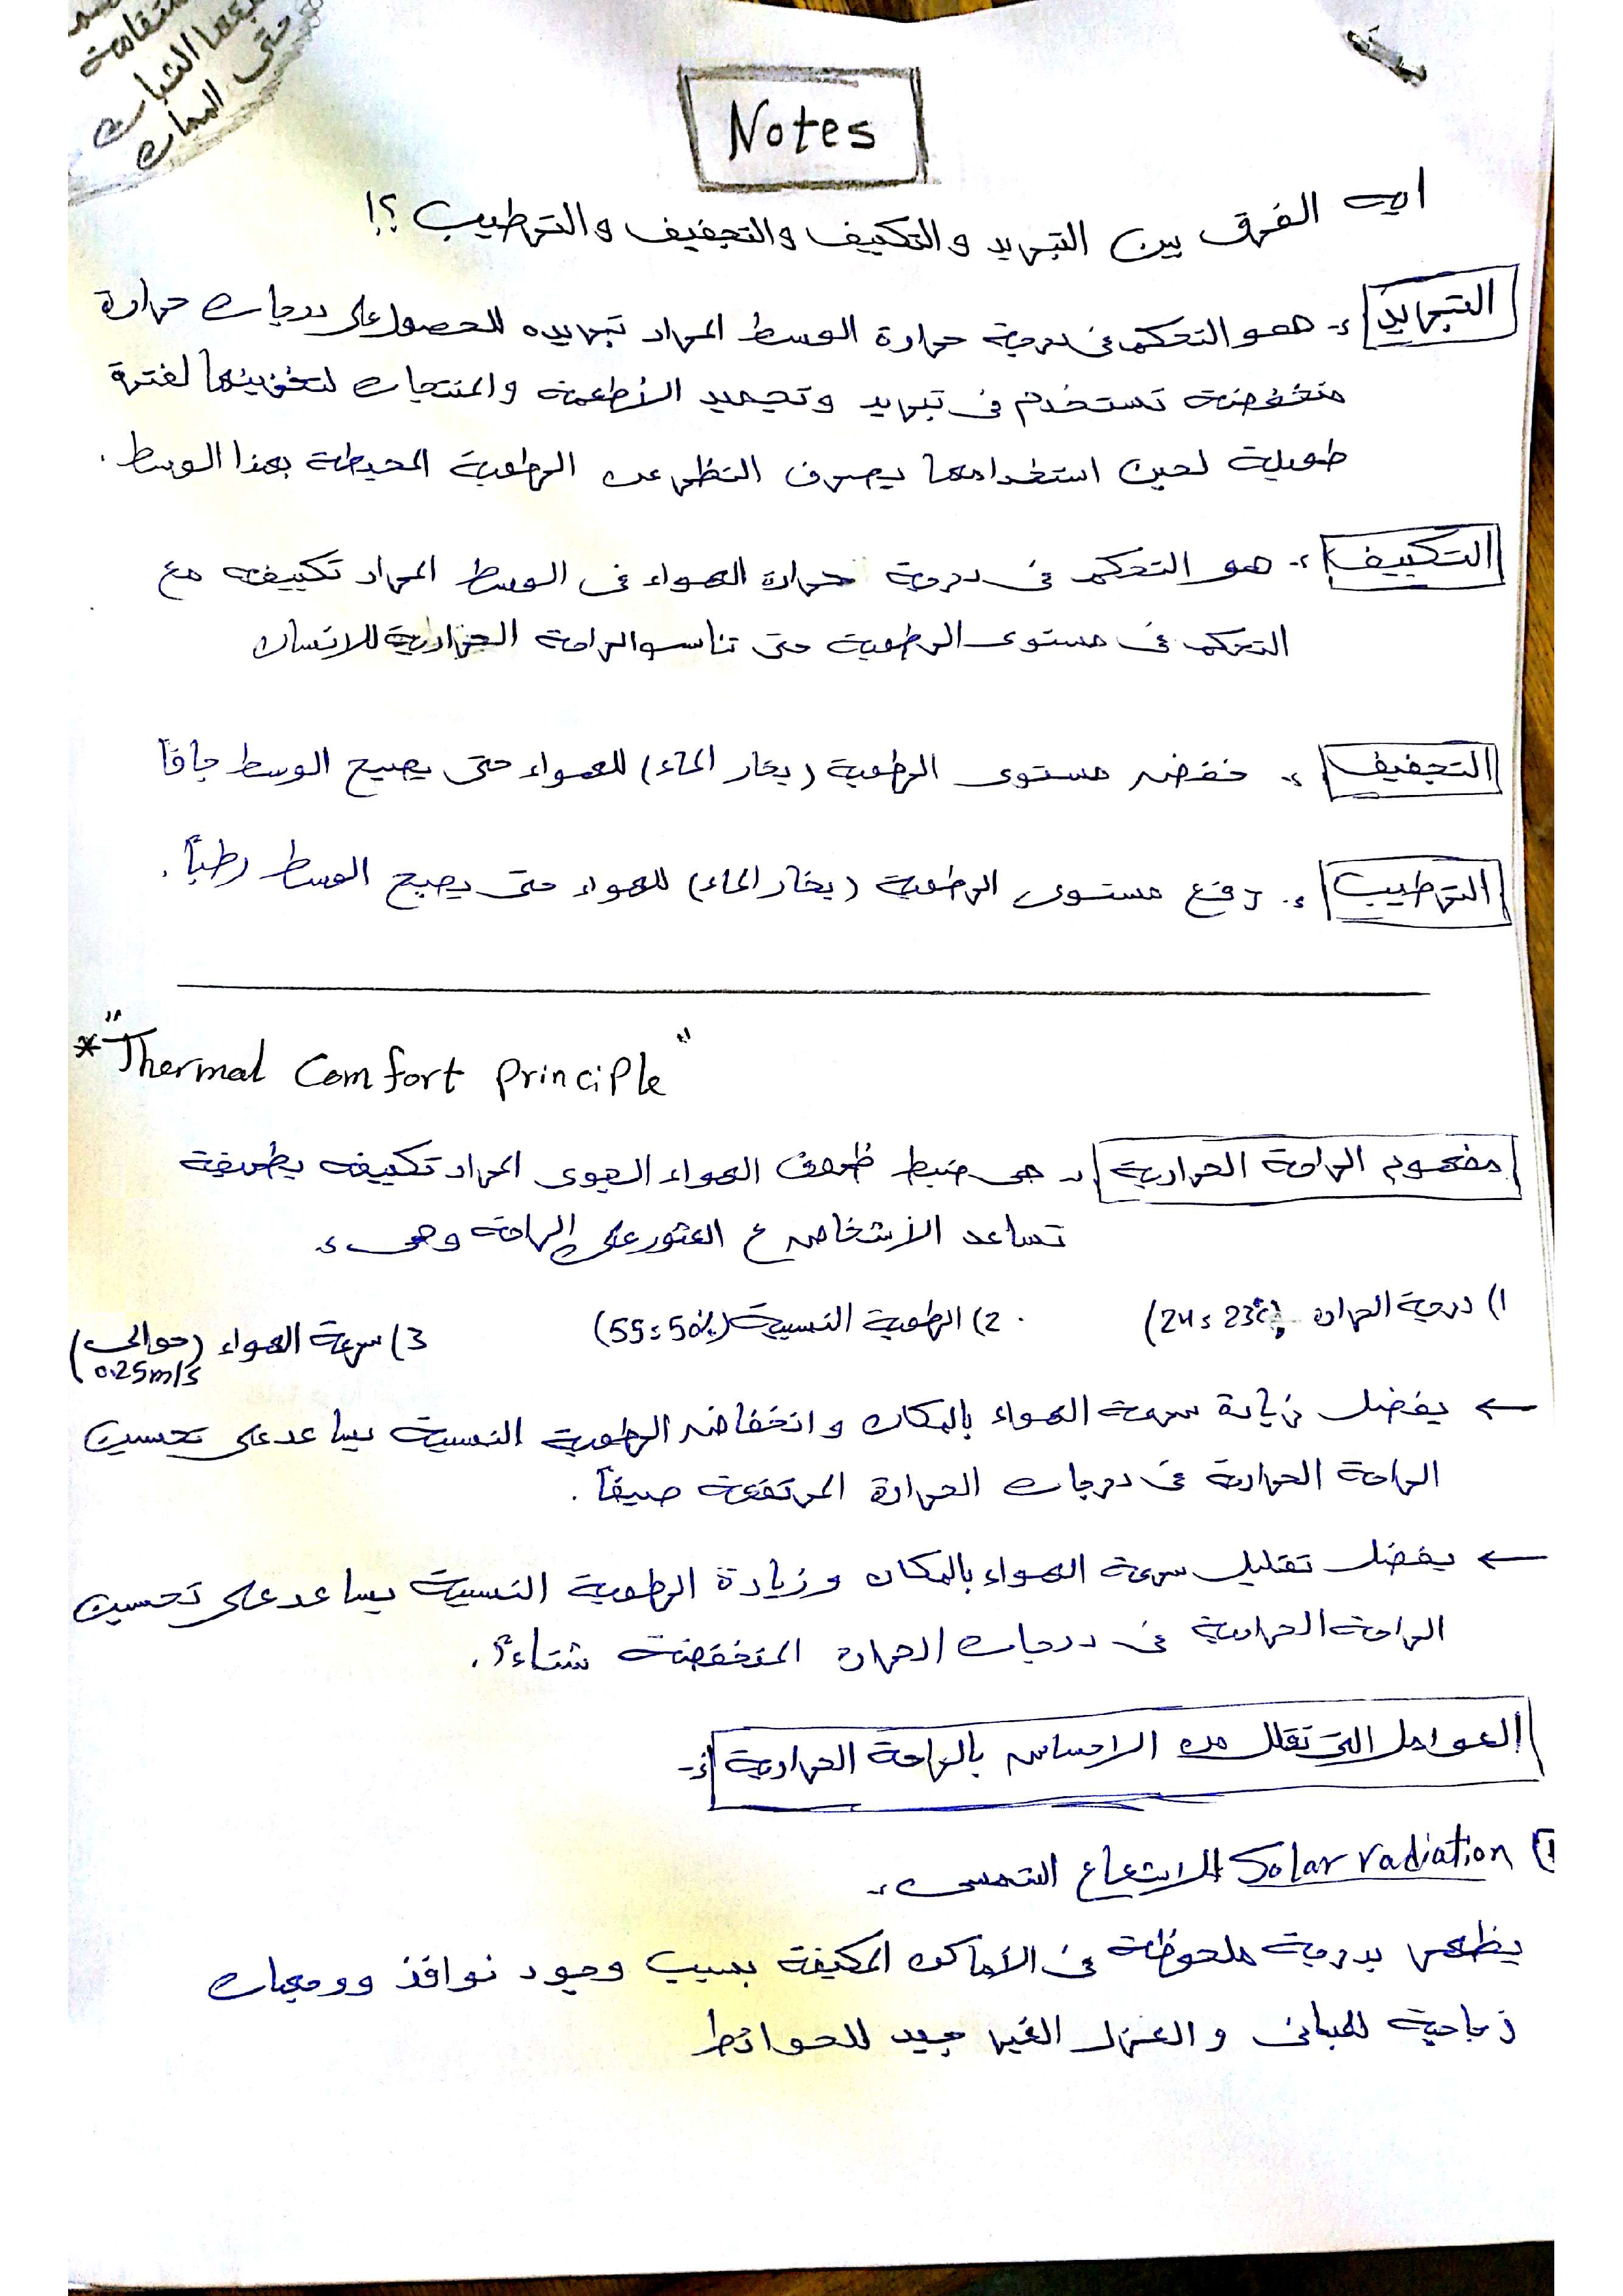 استقامة
يتبعها الثبات
حتى الممات
Notes
ايه الفرق بين التبريد والتكييف والتجفيف والترطيب ؟!
التبريد :- هو التحكم فى درجة حرارة الوسط المراد تبريده للحصول على درجات حرارة
منخفضة تستخدم فى تبريد وتجميد الأطعمة والمنتجات لتخزينها لفترة
طويلة لحين استخدامها بصرف النظر عن الرطوبة المحيطة بهذا الوسط .
التكييف :- هو التحكم فى درجة حرارة الهواء فى الوسط المراد تكييفه مع
التحكم فى مستوى الرطوبة حتى تناسب الراحة الحرارية للانسان
التجفيف :- خفض مستوى الرطوبة (بخار الماء) للهواء حتى يصبح الوسط جافاً
الترطيب :- رفع مستوى الرطوبة (بخار الماء) للهواء حتى يصبح الوسط رطباً .
* "Thermal Comfort Principle"
مفهوم الراحة الحرارية :- هى ضبط ظروف الهواء الجوى المراد تكييفه بطريقة
تساعد الأشخاص ع العثور على الراحة وهى :-
1) درجة الحرارة (24 : 23°c)
2) الرطوبة النسبية (55 : 50%)
3) سرعة الهواء (حوالى 0.25m/s)
← يفضل زيادة سرعة الهواء بالمكان وانخفاض الرطوبة النسبية يساعد على تحسين
الراحة الحرارية فى درجات الحرارة المرتفعة صيفاً .
← يفضل تقليل سرعة الهواء بالمكان وزيادة الرطوبة النسبية يساعد على تحسين
الراحة الحرارية فى درجات الحرارة المنخفضة شتاءً .
العوامل التى تقلل من الاحساس بالراحة الحرارية :-
1) Solar radiation الاشعاع الشمسى :-
يظهر بدرجة ملحوظة فى الأماكن المكيفة بسبب وجود نوافذ ووجهات
زجاجية للمبانى والعزل الغير جيد للحوائط